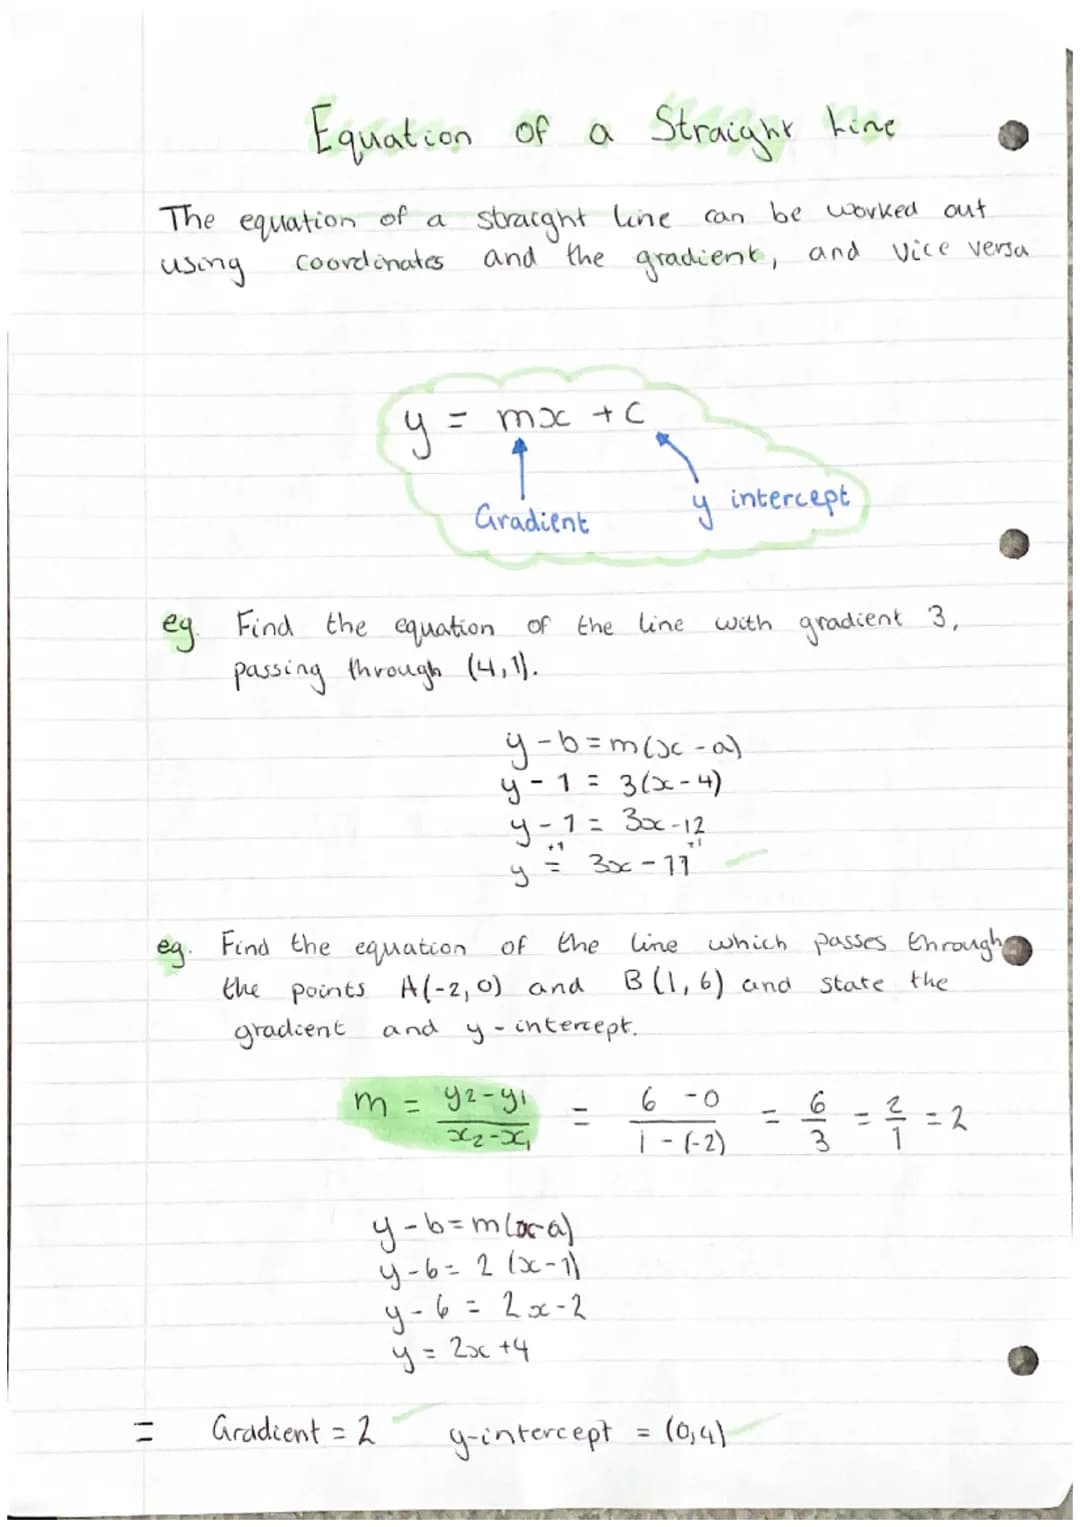 Equation of a Straight Line
The equation of a straight line can be worked out
using coordinates and the gradient, and vice versa
y = mx + c
Gradient
y intercept
eg. Find the equation of the line with gradient 3,
passing through (4,1).
y - b = m(x - a)
y - 1 = 3(x - 4)
y - 1 = 3x - 12
+1 +1
y = 3x - 11
eg. Find the equation of the line which passes through
the points A(-2,0) and B(1,6) and state the
gradient and y-intercept.
m = y2-y1/x2-x1 = 6-0/1-(-2) = 6/3 = 2/1 = 2
y - b = m(x-a)
y - 6 = 2 (x-1)
y - 6 = 2x - 2
y = 2x + 4
= Gradient = 2 y-intercept = (0,4)